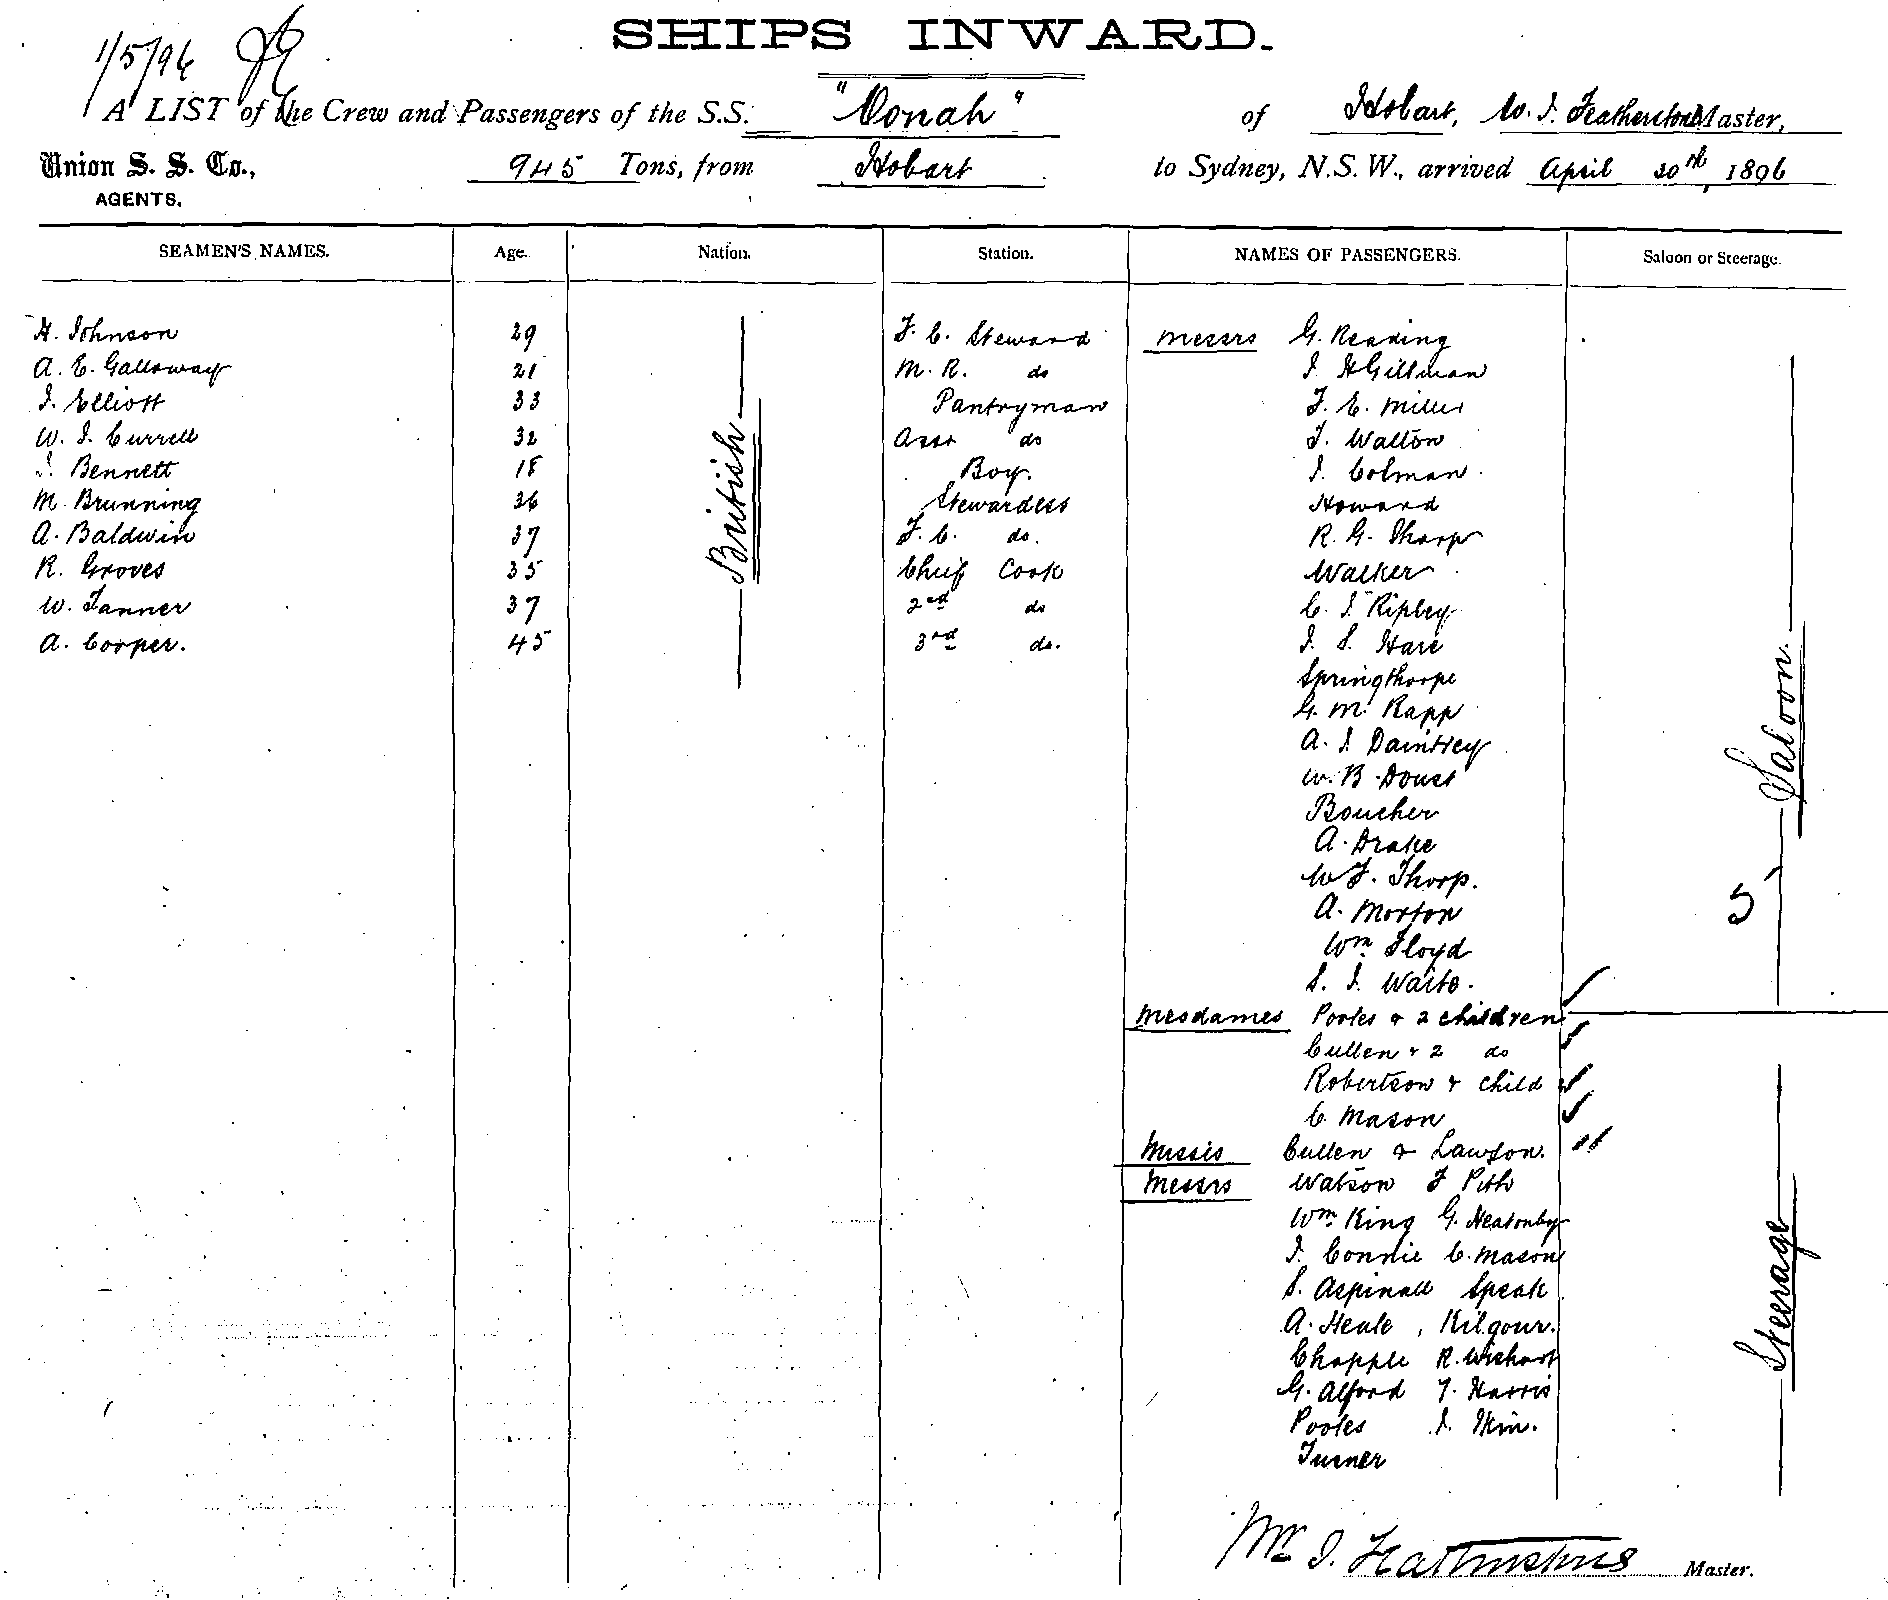 SHIPS INWARD.
1/5/96
A LIST of the Crew and Passengers of the S.S. "Oonah" of Hobart, W. J. Featherstone Master,
Union S. S. Co., 945 Tons, from Hobart to Sydney, N.S.W., arrived April 30th, 1896
AGENTS.
SEAMEN'S NAMES. Age. Nation. Station. NAMES OF PASSENGERS. Saloon or Steerage.
H. Johnson 29 F. C. Steward Messrs G. Reading
A. E. Galloway 21 M. R. do J. H Gillman
J. Elliott 33 Pantryman F. E. Miller
W. J. Currell 32 Asst do T. Walton
J. Bennett 18 Boy. J. Colman
M. Brunning 36 Stewardess Howard
A. Baldwin 37 F. C. do. R. G. Tharp
R. Groves 35 Chief Cook Walker
W. Tanner 37 2nd do C. J. Ripley
A. Cooper. 45 3rd do. J. S. Hare
British
Springthorpe
G. M. Rapp
A. J. Daintrey
W. B. Doust
Boucher
A. Drake
W F. Thorp.
A. Morton
Wm Floyd
S. J. Waite.
Saloon.
Mesdames Pooles & 2 children
Cullen & 2 do
Robertson & child
C. Mason
Misses Cullen & Lawson.
Messrs Watson F
Wm King G.
J. Connie C. Mason
S. Aspinall Speak
A. Heale, Kilgour.
Chapple R. Wishart
G. Alford T. Harris
Pooles J.
Turner
Steerage
Wm J. Featherstone Master.